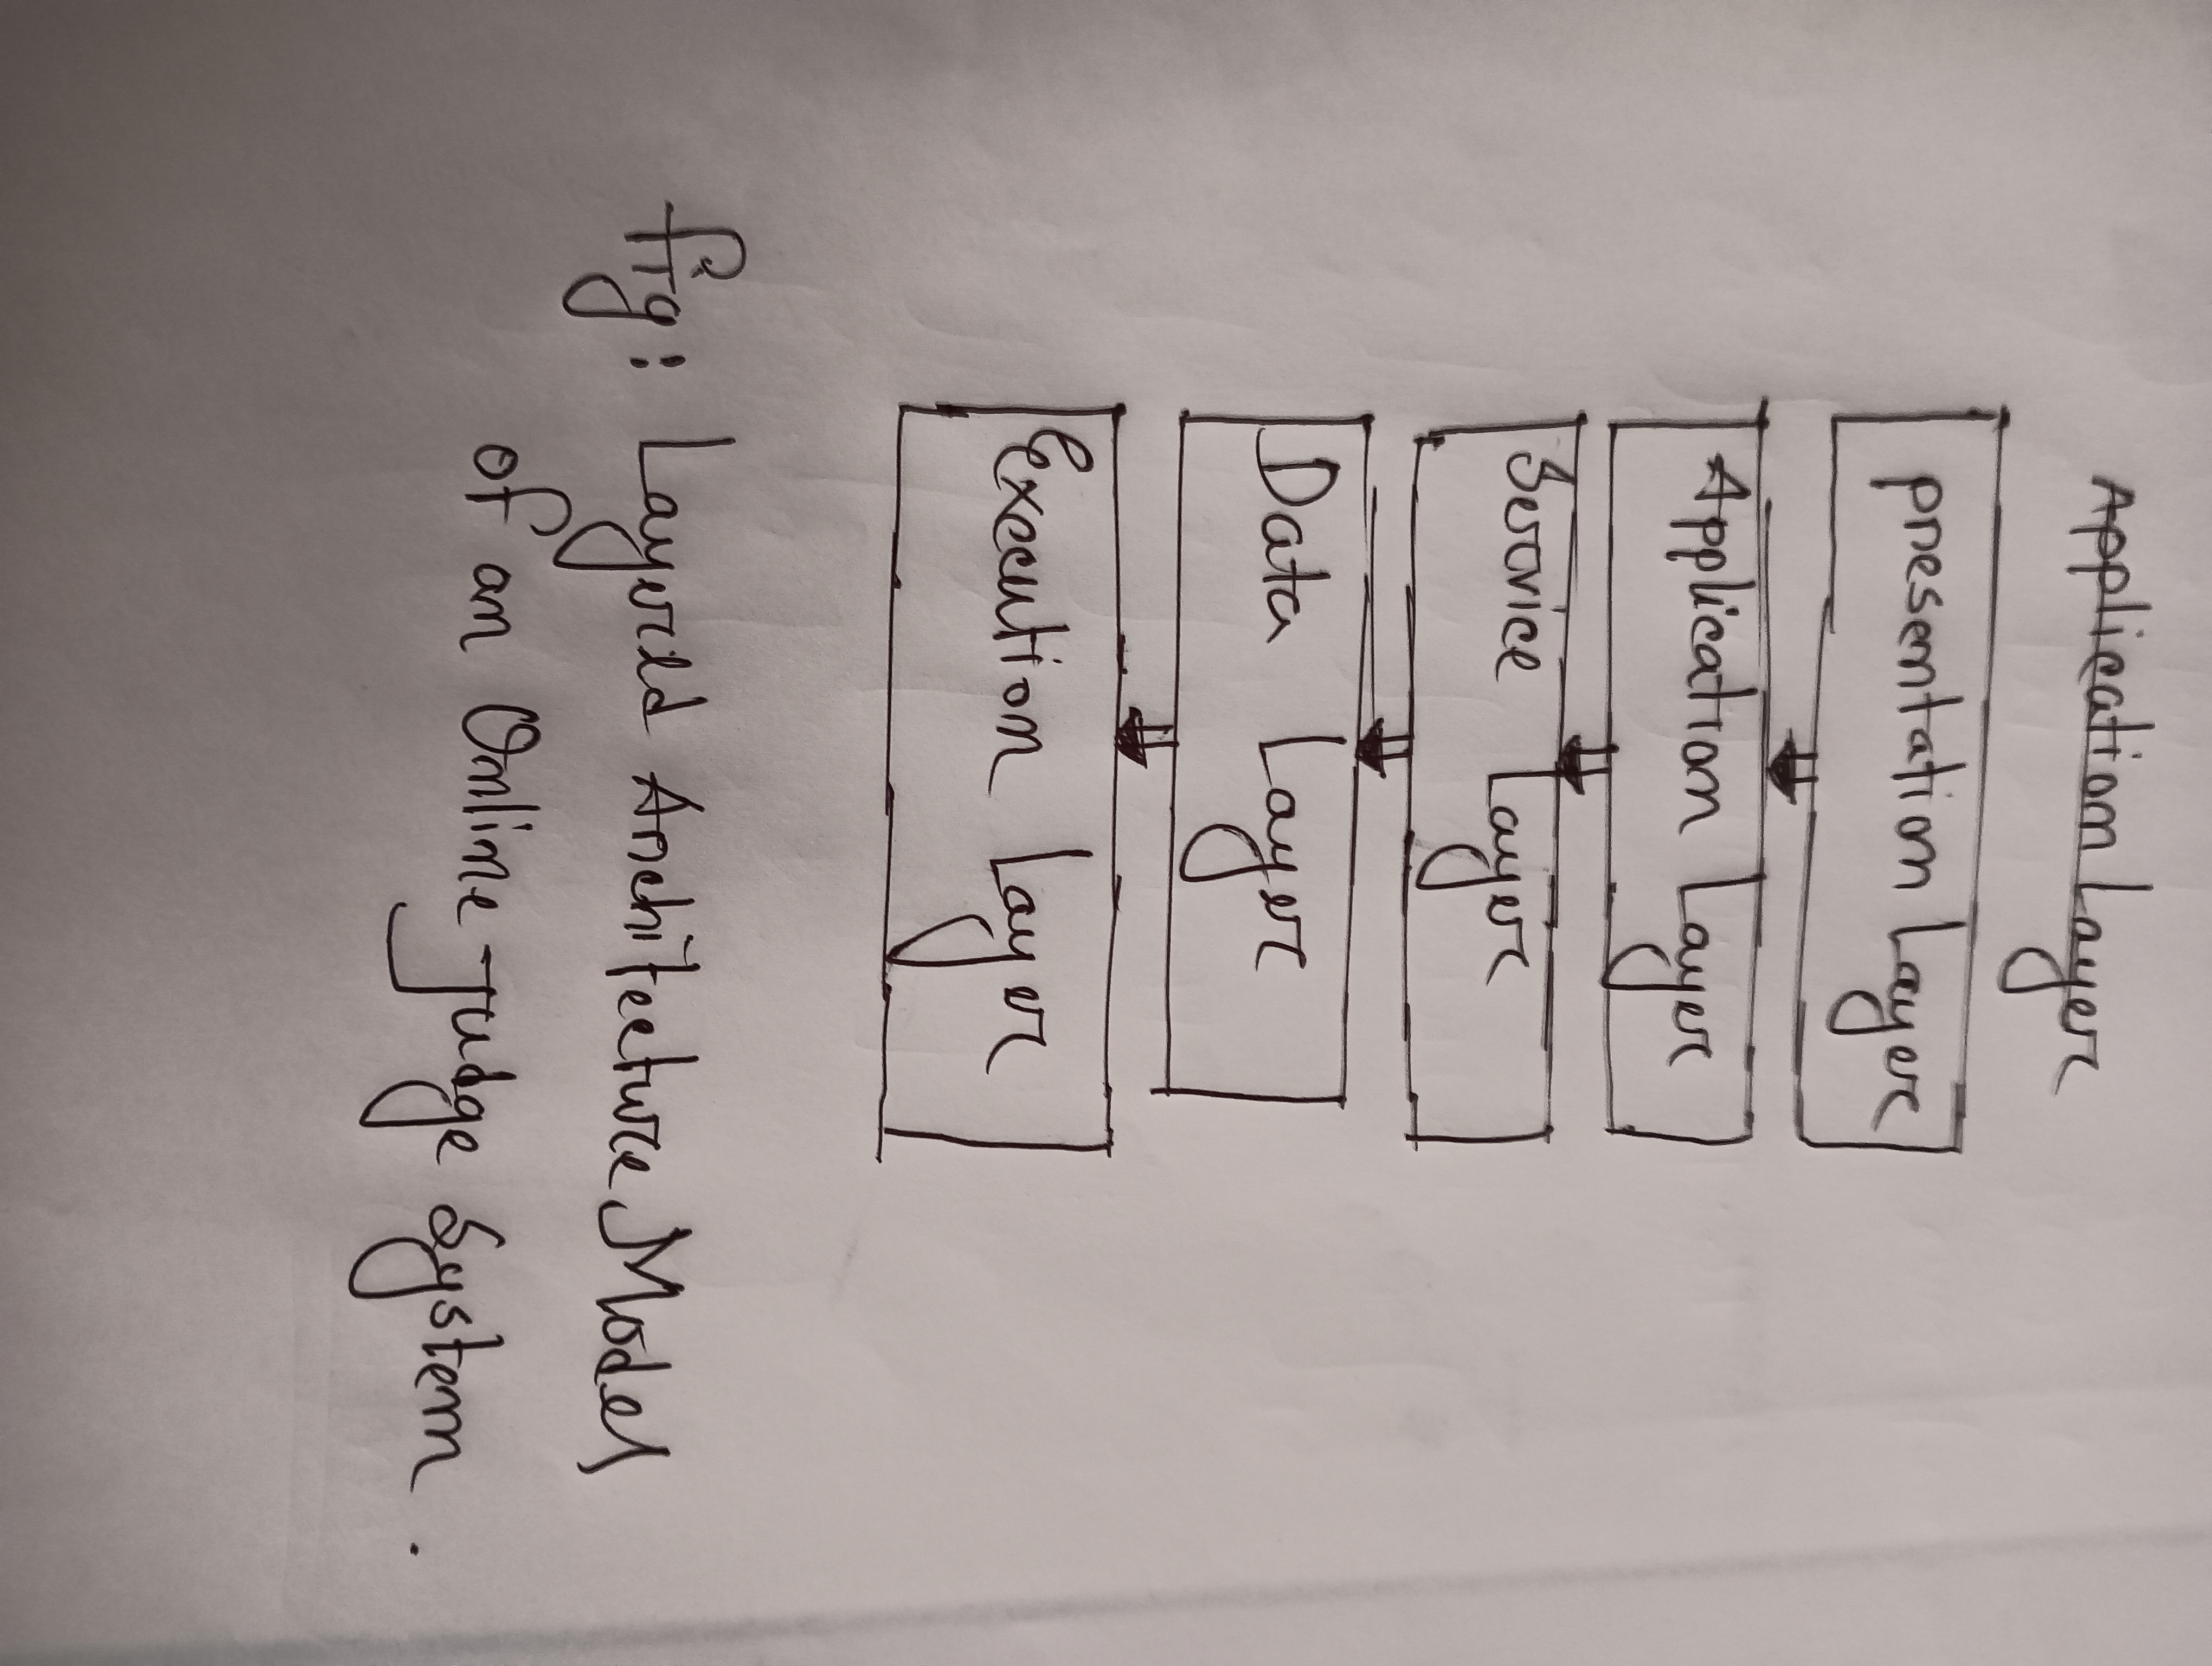 Application Layer
Presentation Layer
Application Layer
Service Layer
Data Layer
Execution Layer
Fig: Layered Architecture Model
of an Online Judge System.